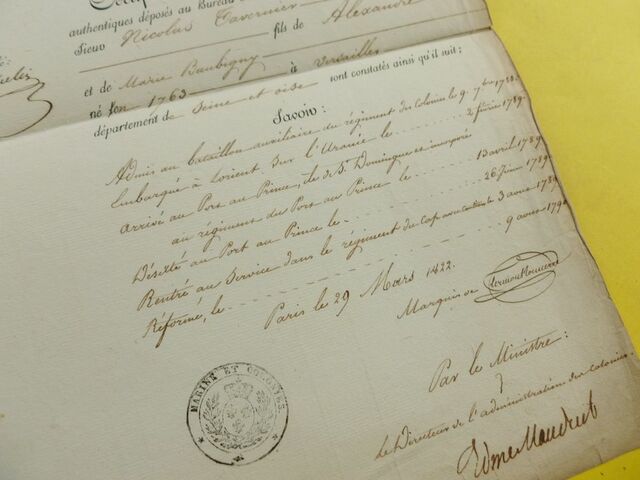 authentiques déposés au Bureau
Sieur Nicolas Tavernier fils de Alexandre
et de Marie Baubigny
né en 1763 à Versailles
département de Seine et oise sont constatés ainsi qu'il suit:
Savoir:
Admis au bataillon auxiliaire du régiment des Colonies le 9. 7bre 1788.
Embarqué à Lorient sur l'Uranie le 2 février 1789.
Arrivé au Port au Prince, île de St Domingue et incorporé
au régiment du Port au Prince le 13 avril 1789.
Déserté au Port au Prince le 26 juin 1789.
Rentré au Service dans le régiment du Cap le 3 aout 1789.
Réformé, le 9 avril
Paris le 29 Mars 1822.
Marquis de Clermont Tonnerre
MARINE ET COLONIES
Par le Ministre:
Le Directeur de l'administration des Colonies.
Edme Mauduit